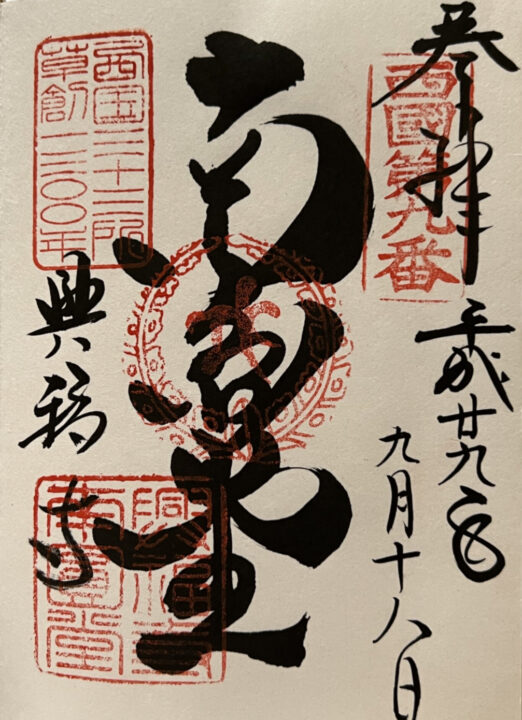 参拝
平成廿九年
九月十八日
西國第九番
南圓堂
西国三十三所
草創一三〇〇年
興福寺
興福寺
南圓堂